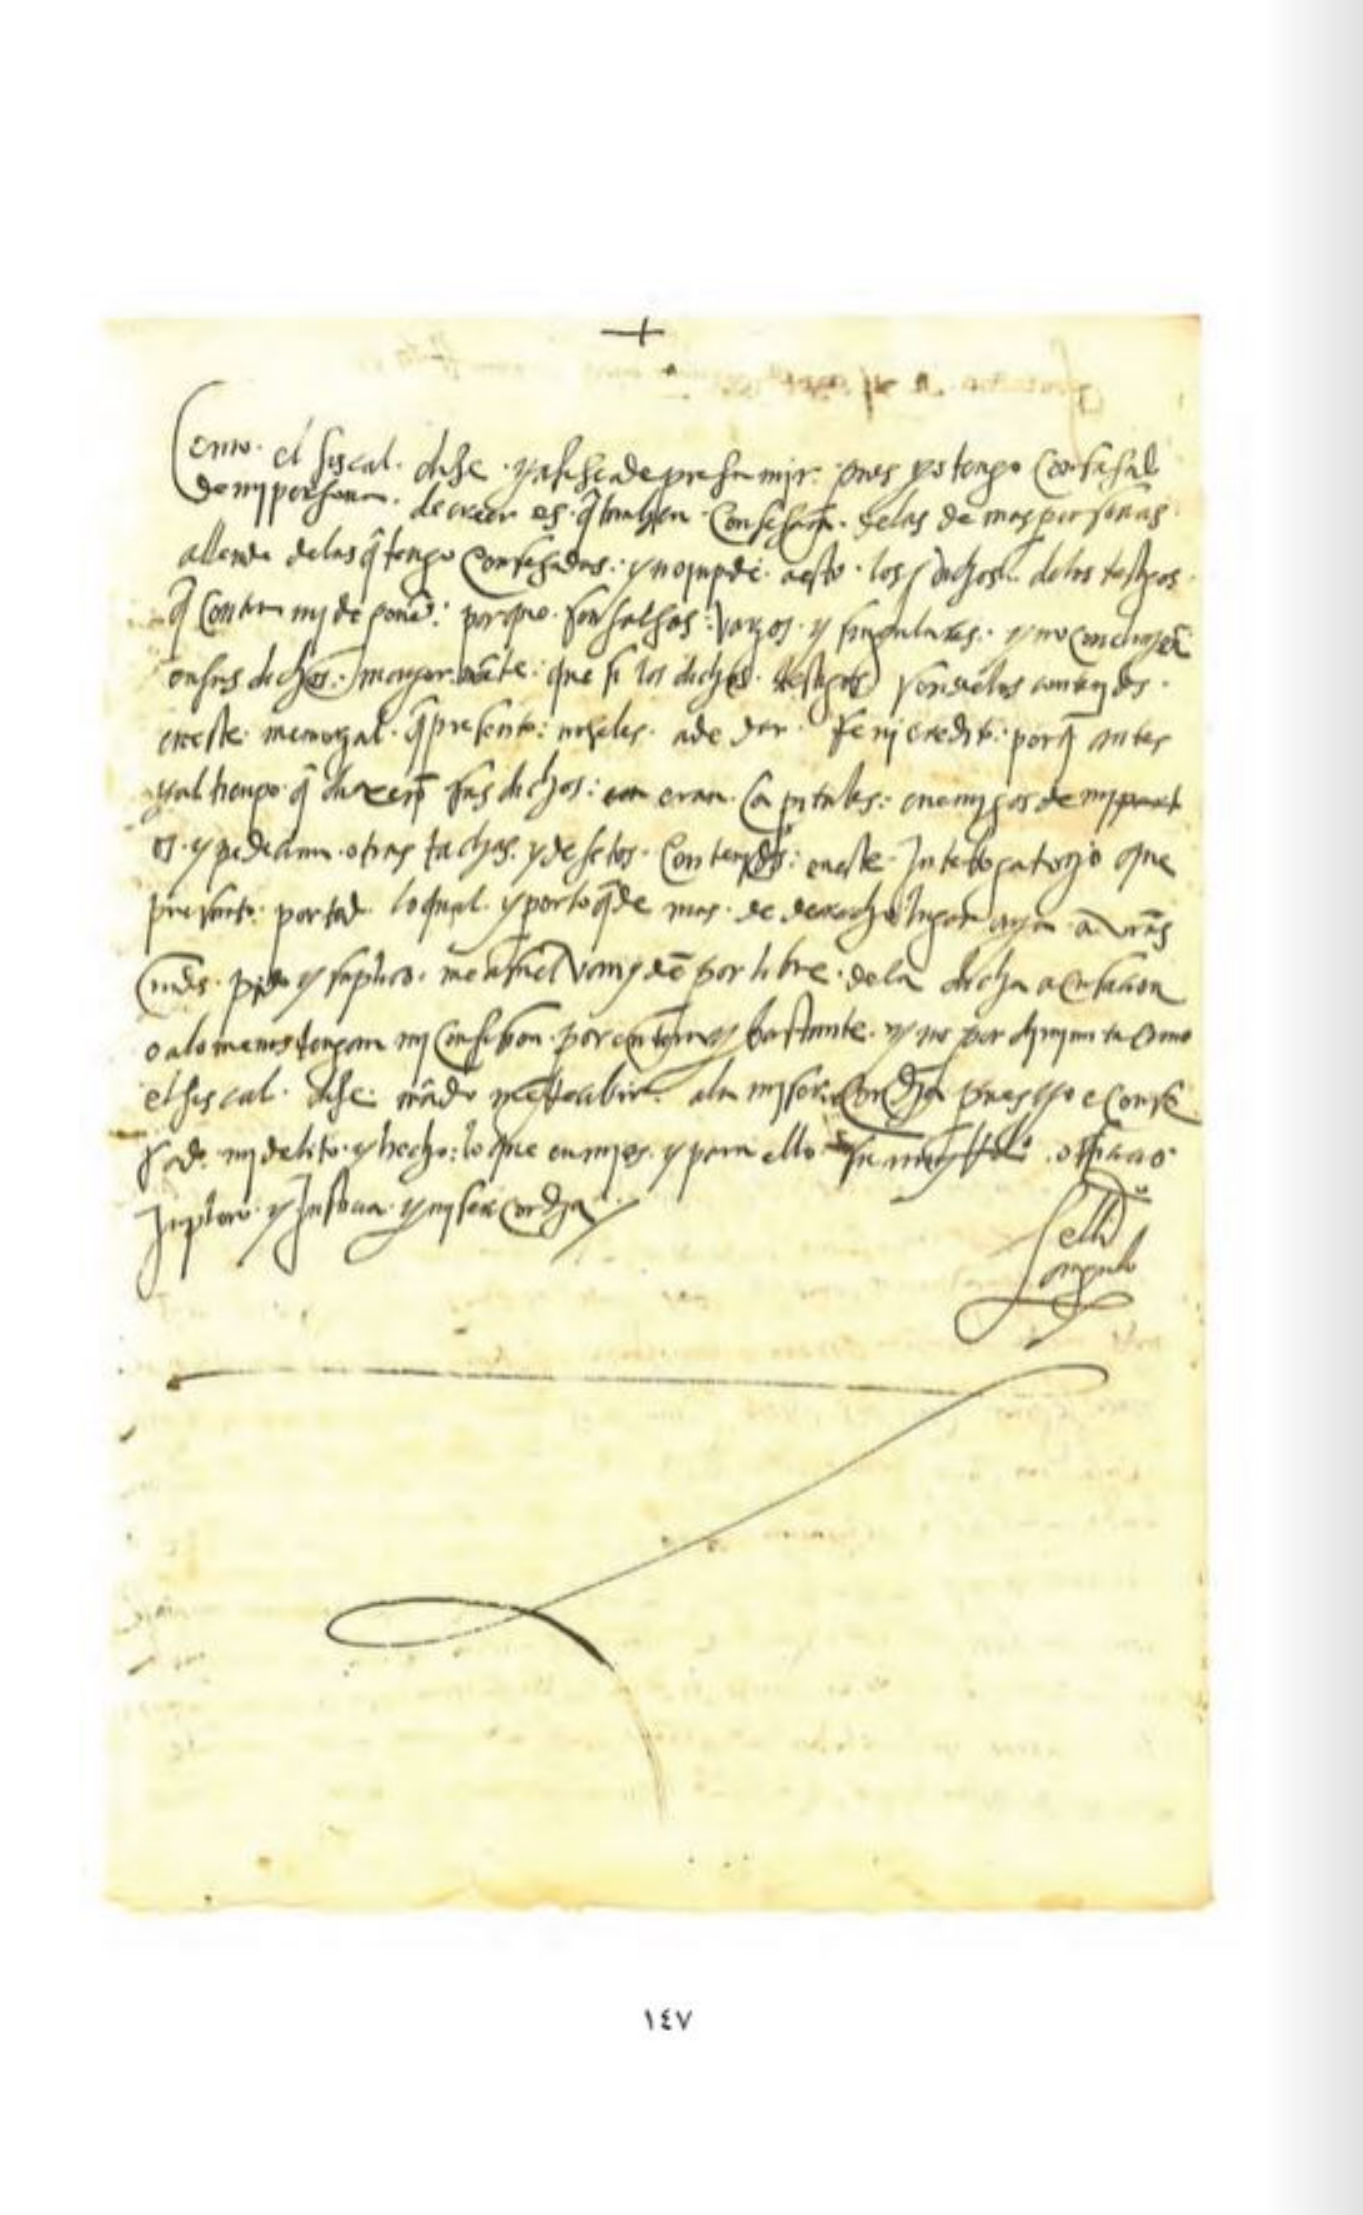 +
Como el fiscal dise y asi se a de presumir pues yo tengo confesad
de mi persona. de creer es q̃ tambien confesara delas demas personas
allende delas q̃ tengo confesadas: y no inpide a esto los dichos delos testigos
q̃ contra mi deponẽ: porque son falsos: varios y singulares. y no concluyẽ
en sus dichos: mayor mẽte: que si los dichos testigos son delos contenidos
eneste memorial q̃ presento: no seles a de dar fe ni credito: porq̃ antes
y al tiempo q̃ dixerõ sus dichos: eran capitales: enemigos de mi part
es y padecian otras tachas y defetos contenidos: eneste interogatorio que
presento: por tãto lo qual y por lo q̃ de mas de derecho lugar aya a vr̃as
mds. pido y suplico me asuelvan y dẽ por libre dela dicha acusacion
o alomenos tengan mi confesion por entera y bastante y no por diminuta como
el fiscal dise mãdãdo me recibir ala misericordia pues yo e confe
sado mi delito y hecho: lo que en mi es. y para ello officio
inploro y justicia y misericordia
el lido
angulo
١٤٧